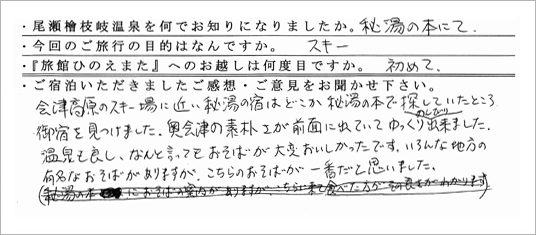 ・尾瀬檜枝岐温泉を何でお知りになりましたか。秘湯の本にて.
・今回のご旅行の目的はなんですか。 スキー
・『旅館ひのえまた』へのお越しは何度目ですか。 初めて.
・ご宿泊いただきましたご感想・ご意見をお聞かせ下さい。
会津高原のスキー場に近い秘湯の宿はどこか秘湯の本で探していたところ
御宿を見つけました。奥会津の素朴さが前面に出ていてゆっくりのんびり出来ました。
温泉も良し、なんと言ってもおそばが大変おいしかったです。いろんな地方の
有名なおそばがありますが、こちらのおそばが一番だと思いました。
(秘湯の本 におそばの案内がありますが、こちらに来て食べた方がその良さがわかります)